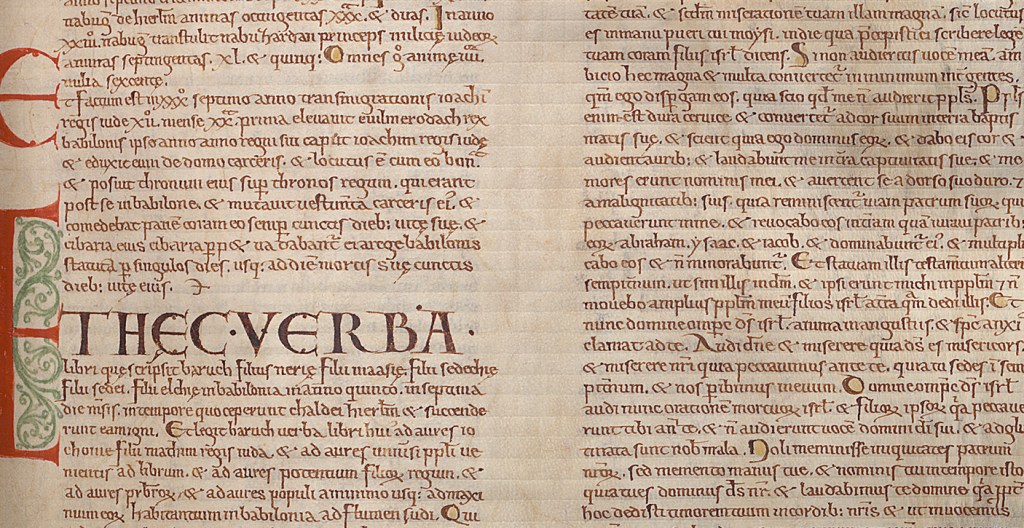 nabuꝗ de hierłm animas octingentas xxx. & duas. In anno
xxiii. nabuꝗ transtulit nabuzardan princeps milicię iudeoꝝ
animas septingentas. xl. & quinq;. Omnes ġ animę iiii.
milia sexcentę.
Et factum est in xxx. septimo anno transmigrationis ioachī
regis iudę xii. mense xx. prima elevavit evilmerodach rex
babilonis ipso anno anno regni sui caput ioachim regis iudę
& eduxit eum de domo carceris. & locutus ē cum eo bona.
& posuit thronum eius sup thronos regum. qui erant
post se in babilone. & mutavit vestimta carceris ei. &
comedebat panē coram eo semp cunctis dieb; vitę suę. &
cibaria eius cibaria pp & ua dabant ei a rege babilonis
statuta p singulos dies. usq; ad diē mortis suę cunctis
dieb; vitę eius.
ET HĘC·VERBA·
libri quę scripsit baruch filius nerię filii maasię. filii sedechię
filii sedei. filii elchię in babilonia in anno quinto. in septima
die msis. in tempore quo ceperunt chaldei hierłm & succende
runt eam igni. Et legit baruch verba libri hui ad aures io
chonię filii ioachim regis iuda. & ad aures universi ppli ve
nientis ad librum. & ad aures potentum filioꝝ regum. &
ad aures prbroꝝ. & ad aures populi a minimo usq; ad maxi
mum eoꝝ habitantium in babilonia ad flumen sudi. Qui
tatē tuā. & scdm miserationē tuam illam magna. sic locutus
es in manu pueri tui moysi. in die qua pcepisti ei scribere legē
tuam coram filiis isrł dicens. Si non audieritis vocē meā. am
bicio hec magna & multa convertet in minimum int gentes.
qm ego dispgam eos. quia scio qd me ñ audiet ppls. Ppls
enim est dura cervice & convertet ad cor suum in terra captivi
tatis suę. & scient quia ego dominus eoꝝ. & dabo eis cor &
audient aurib; & laudabunt me in tra captivitatis suę. & me
mores erunt nominis mei. & avertent se a dorso suo duro. &
a malignitatib; suis. quia reminiscent viam patrum suoꝝ qui
peccaverunt in me. & revocabo eos in tram quā iuravi patrib;
eoꝝ abraham. ysaac. & iacob. & dominabunt ei. & multipli
cabo eos & ñ minorabunt. Et statuam illis testamtum alterū
sempitnum. ut sim illis in dm. & ipsi erunt michi in pplm & ñ
movebo amplius pplm meū filios isrł a tra qm dedi illis. Et
nunc domine omps ds isrł. anima in angustiis. & spc anxi
clamat ad te. Audi dne & miserere quia ds es misericors.
& miserere nri quia peccavimus ante te. quia tu sedes in sem
pitnum. & nos peribimus in evum. Domine omps ds isrł
audi nunc orationē mortuoꝝ isrł & filioꝝ ipsoꝝ qa peccave
runt tibi an te. & ñ audierunt vocē domini di sui. & adglu
tinata sunt nob mala. Noli meminisse iniquitates patrum
nroꝝ. sed memento manus tuę. & nominis tui in tempore isto
quia tu es dominus ds nr. & laudabimus te domine qa ppt
hoc dedisti timorem tuum in cordib; nris & ut invocemus